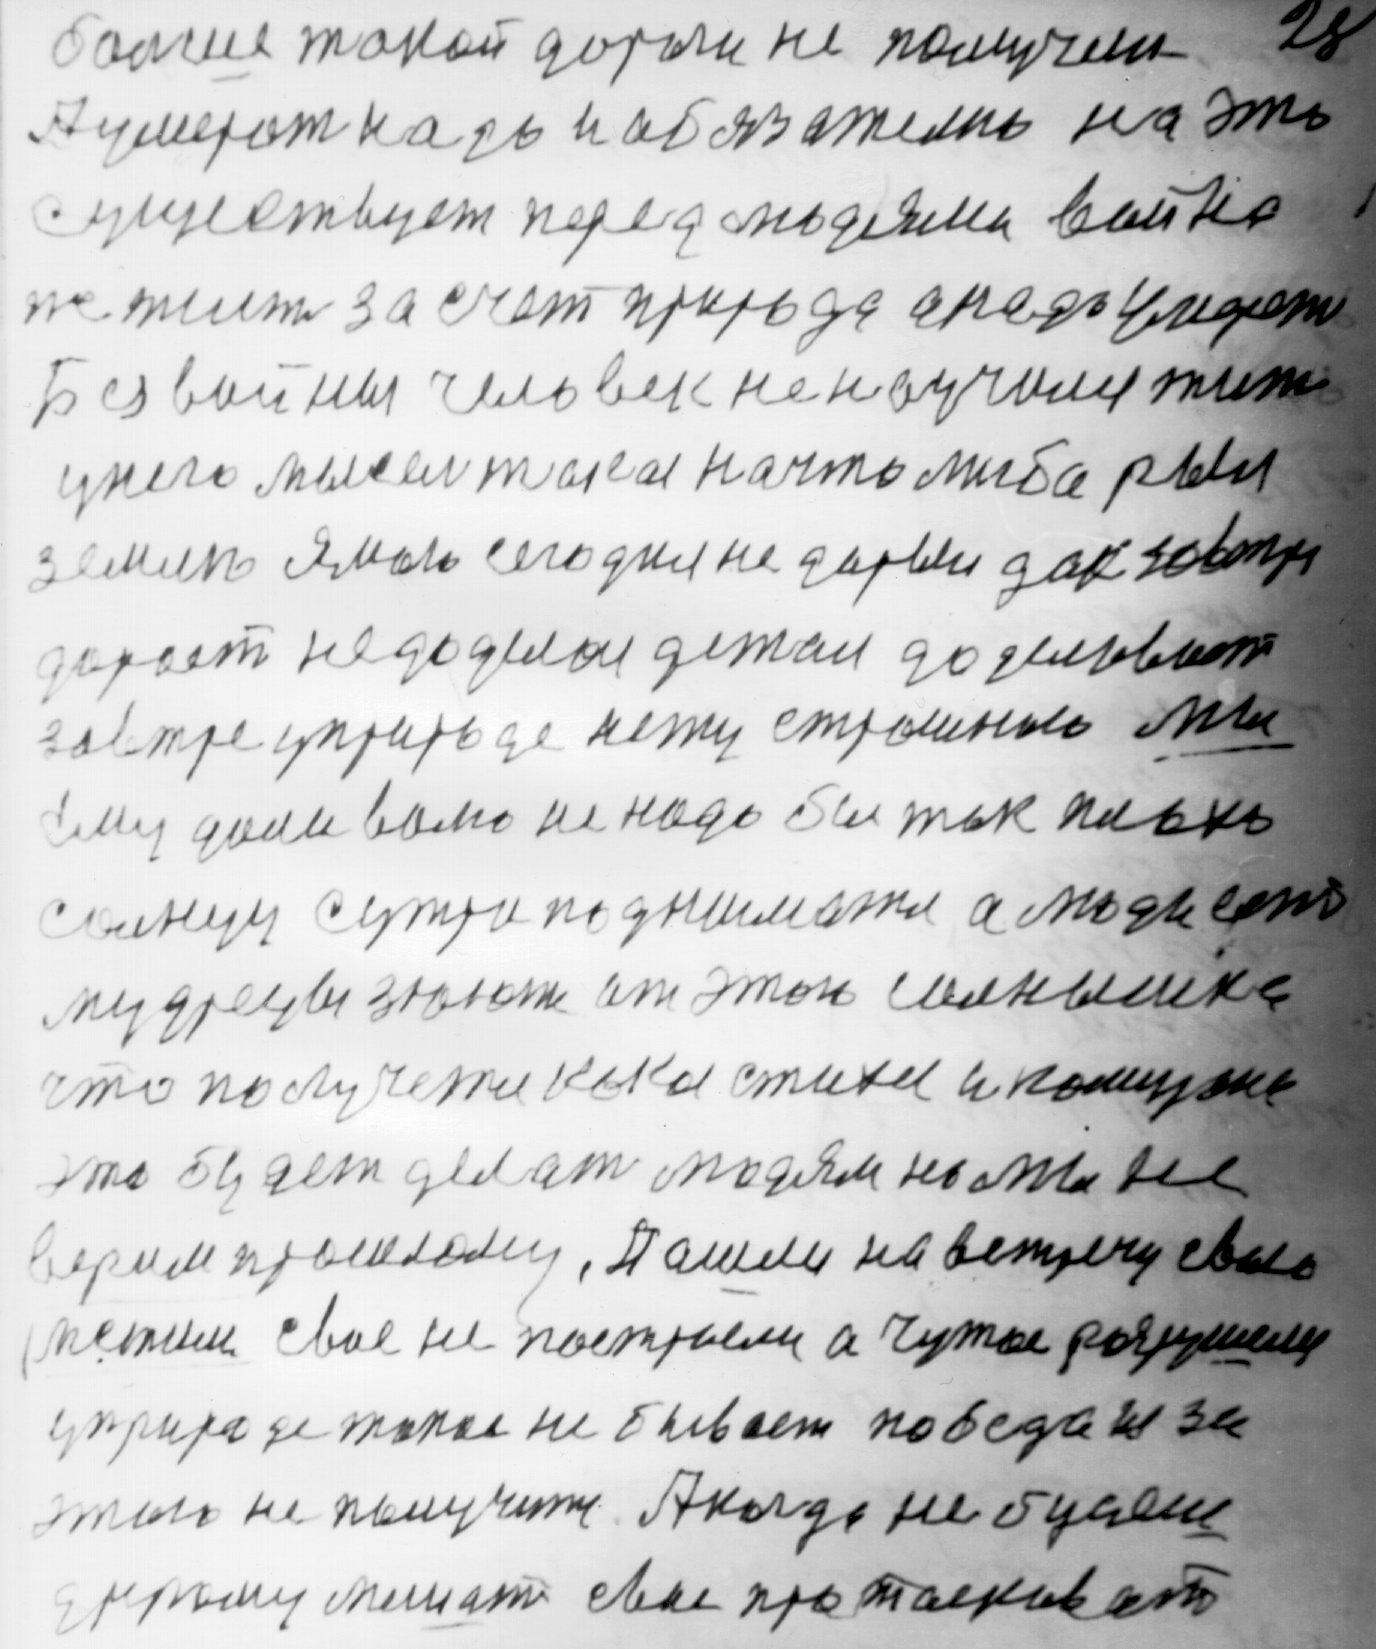 28
больше такой дороги не получем
А умерат надо и обязателно на это
существует перед людьями война
не жить за счет природа а надо умерат
Без войны человек не научился жить
у него мысел така на что либа рыл
землю яко сегодня не дорыл дак завтре
дороет не доделал детал доделовает
завтре у природе нету страшного мы
ему дали волю не надо бы так плохо
солнцу сутра подниматся а люди ест
мудрецы знают от этого солнышка
что получется кака стихия и кому она
это будет делат людям но мы не
верим прошлому, Пашли на встречу свого
метили свое не построели а чужое розрушели
у природе такое не бывает победа из за
этого не получится. А когда не будеш
другому мешат свое протаскиват